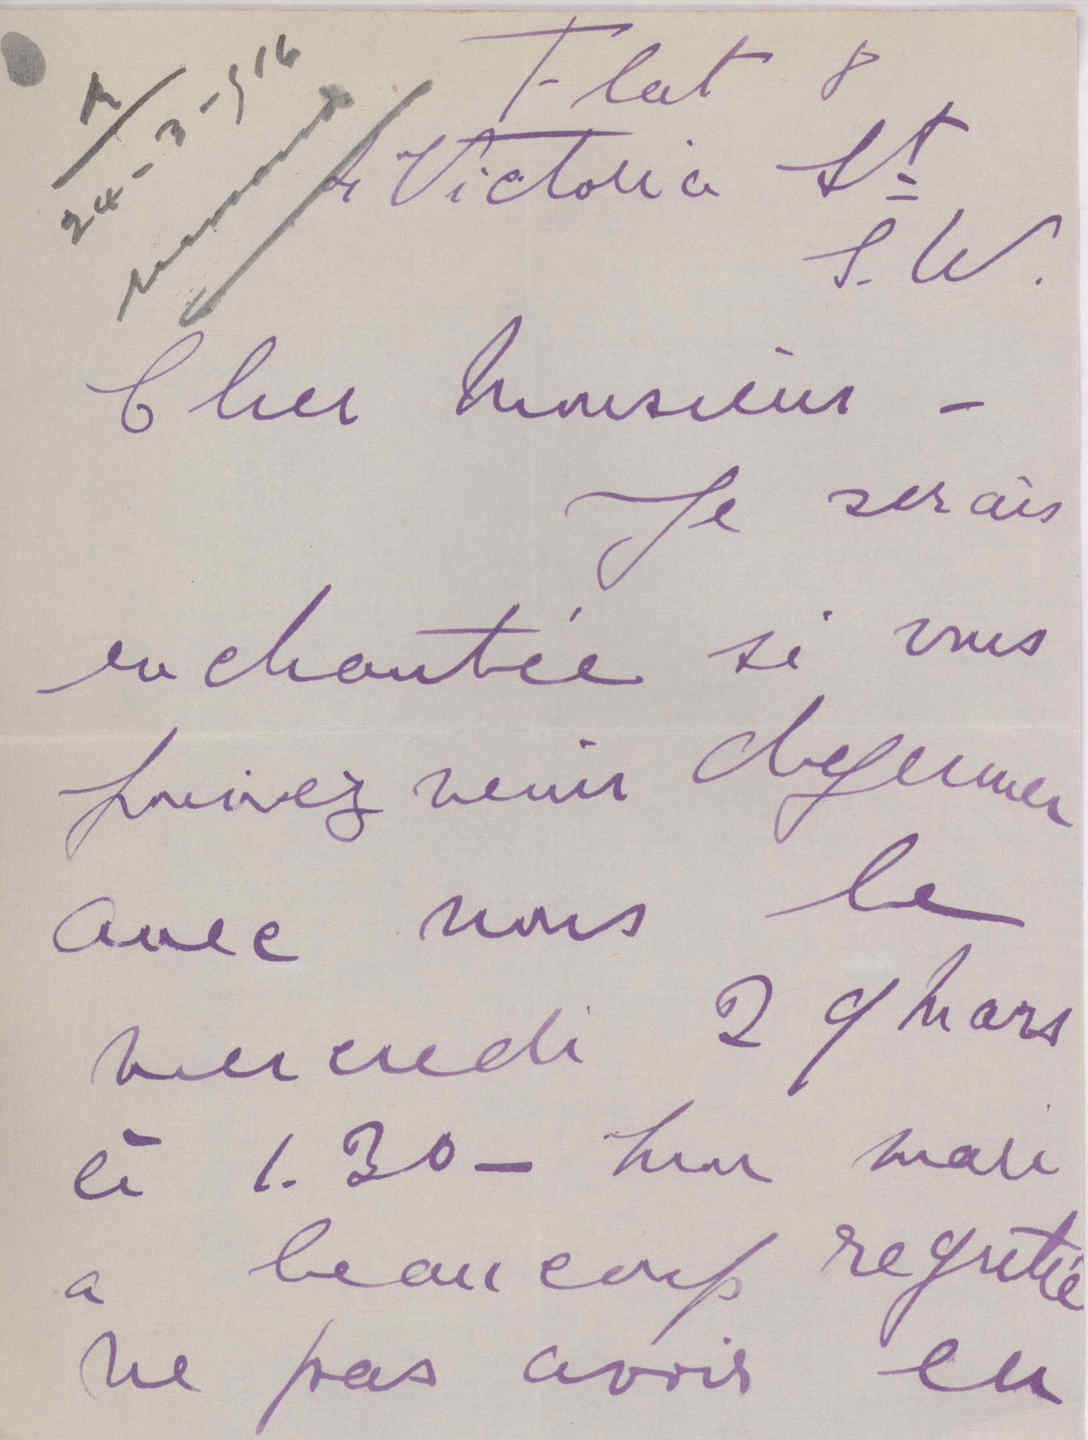 R/
24-3-916
Flat 8
4 Victoria St
S.W.
Cher Monsieur -
Je serais
enchantée si vous
pouvez venir dejeuner
avec nous le
mercredi 29 Mars
à 1.30 - Mon mari
a beaucoup regretté
ne pas avoir eu